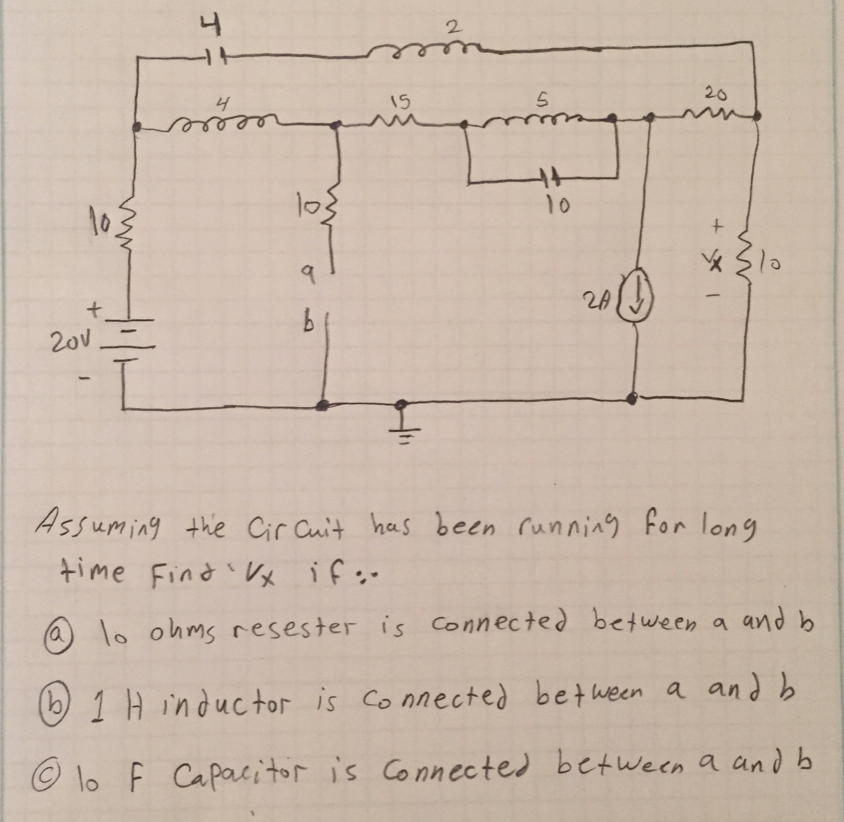 4
2
4
15
5
20
10
10
10
a
b
+
20V
-
2A
+
Vx
-
10
Assuming the Circuit has been running for long
time Find Vx if :.
ⓐ 10 ohms resester is connected between a and b
ⓑ 1 H inductor is connected between a and b
ⓒ 10 F Capacitor is Connected between a and b